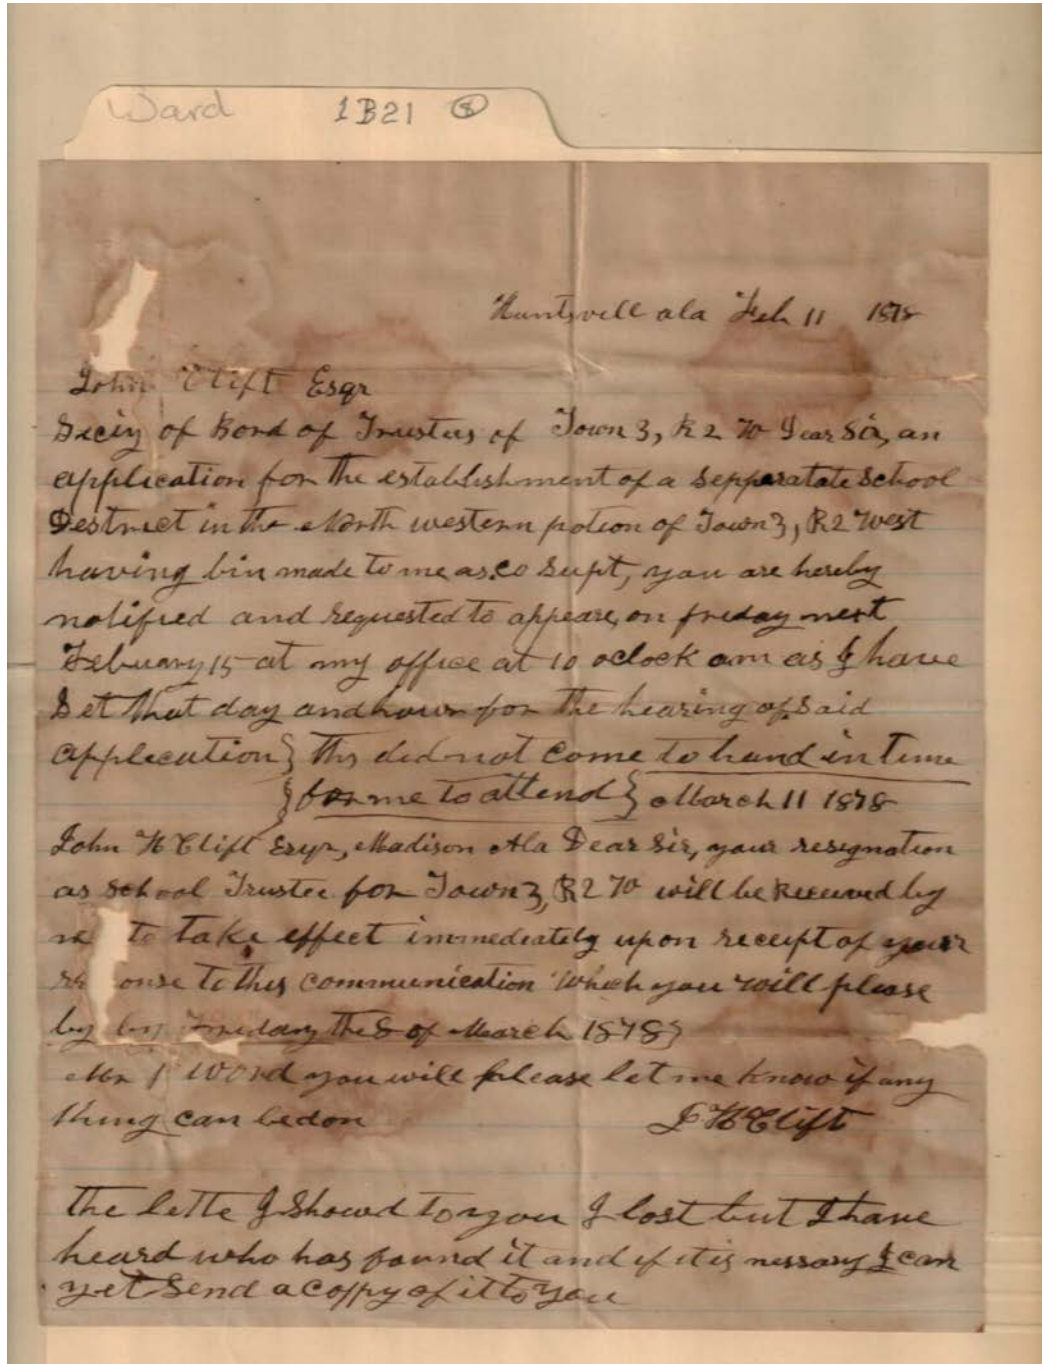 Ward 1B21 8
Huntsvill ala Feb 11 1878
John Clift Esqr
Secty of Bord of Trustees of Town 3, R 2 W Dear Sir, an
application for the establishment of a sepperatate School
Destrict in the North western potion of Town 3, R 2 West
having bin made to me as co Supt, you are hereby
notified and requested to appeare, on friday next
February 15 at my office at 10 oclock am as I have
Set that day and hour for the hearing of Said
applecation} this did not come to hand in time
{for me to attend} March 11 1878
John H Clift Esqr, Madison Ala Dear Sir, your resignation
as School Trustee for Town 3, R 2 W will be Received by
to take effect immediately upon receipt of your
onse to this communication which you will please
by by Friday the 8 of March 1878}
Mr Word you will please let me know if any
thing can be don J H Clift
the lette I Showd to you I lost but I have
heard who has found it and if it is nessary I can
yet Send a coppy of it to you